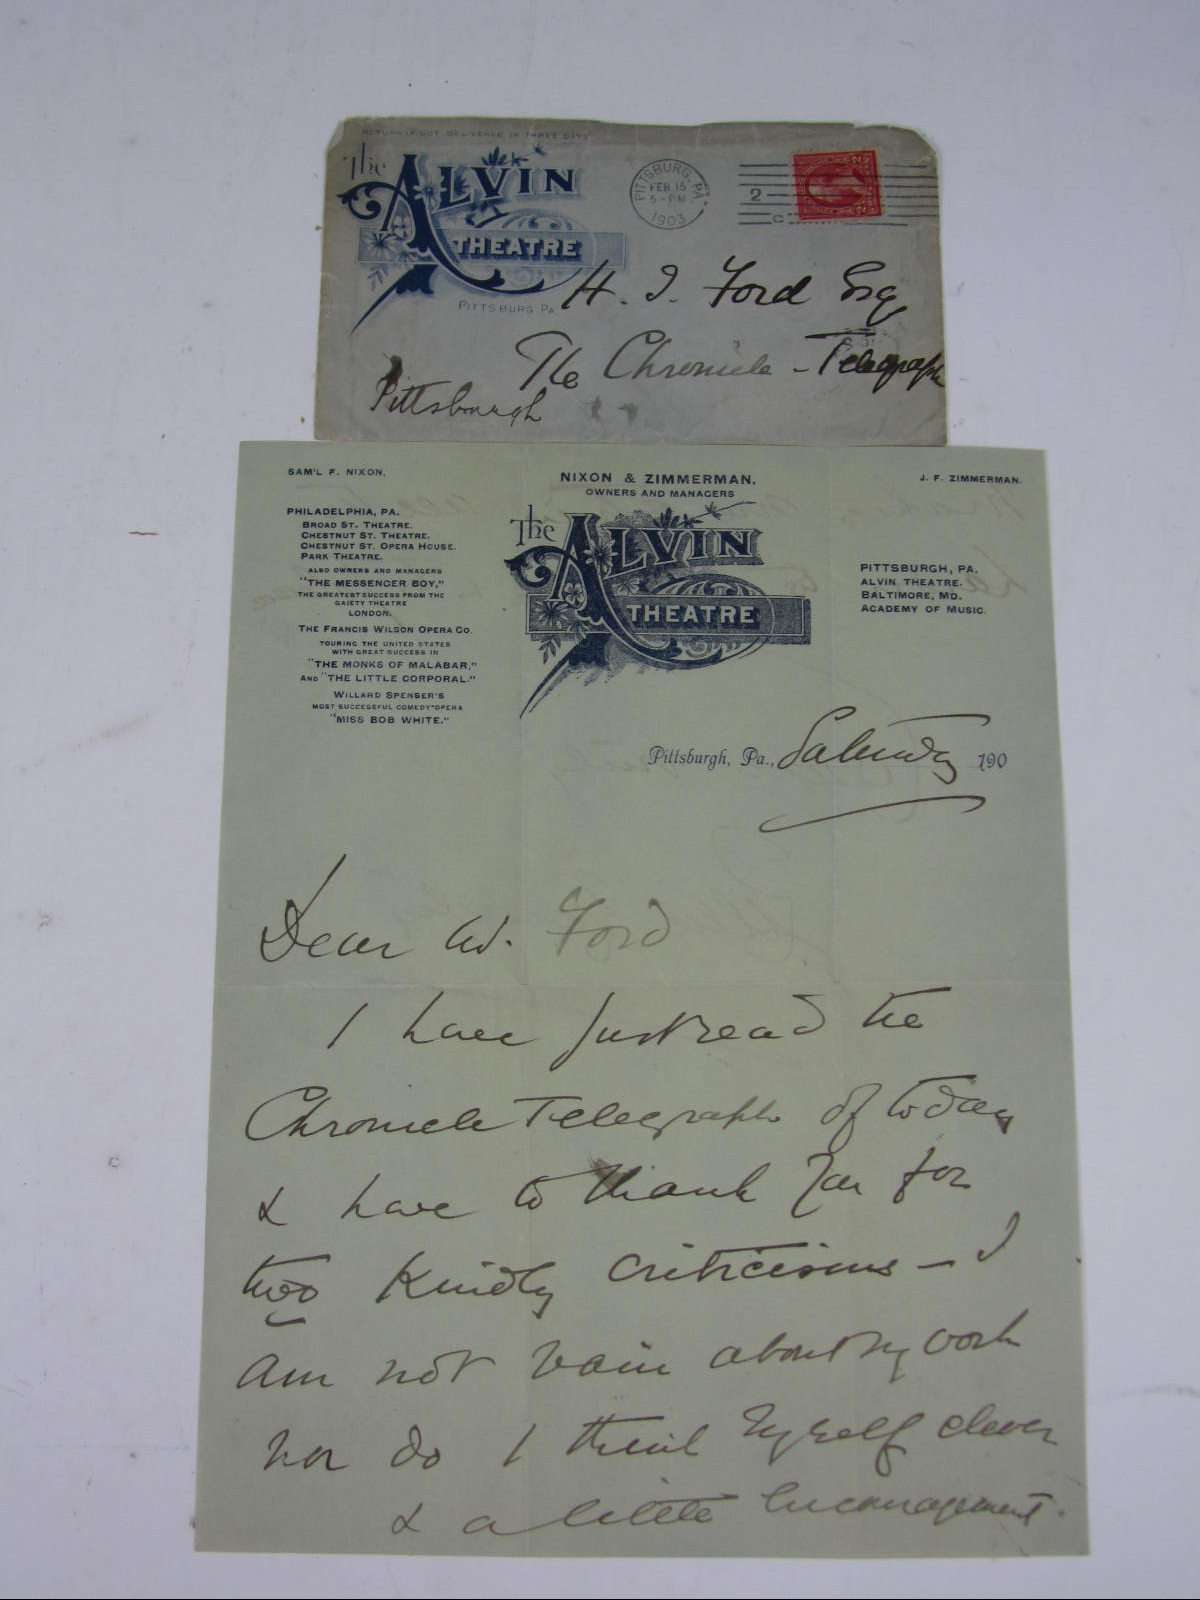 RETURN IF NOT DELIVERED IN THREE DAYS
The ALVIN
THEATRE
PITTSBURG PA
PITTSBURG, PA
FEB 15
5-PM
1903
2
C
H. J. Ford Esq
The Chronicle-Telegraph
Pittsburgh
SAM'L F. NIXON.
NIXON & ZIMMERMAN.
OWNERS AND MANAGERS
J. F. ZIMMERMAN.
The ALVIN
THEATRE
PHILADELPHIA, PA.
BROAD ST. THEATRE.
CHESTNUT ST. THEATRE.
CHESTNUT ST. OPERA HOUSE.
PARK THEATRE.
ALSO OWNERS AND MANAGERS
"THE MESSENGER BOY,"
THE GREATEST SUCCESS FROM THE
GAIETY THEATRE
LONDON.
THE FRANCIS WILSON OPERA CO.
TOURING THE UNITED STATES
WITH GREAT SUCCESS IN
"THE MONKS OF MALABAR,"
AND "THE LITTLE CORPORAL."
WILLARD SPENSER'S
MOST SUCCESSFUL COMEDY OPERA
"MISS BOB WHITE."
PITTSBURGH, PA.
ALVIN THEATRE.
BALTIMORE, MD.
ACADEMY OF MUSIC.
Pittsburgh, Pa., Saturday 190
Dear Mr. Ford
I have just read the
Chronicle Telegraph of today
& have to thank you for
two kindly criticisms - I
am not vain about my work
nor do I think myself clever
& a little encouragement.